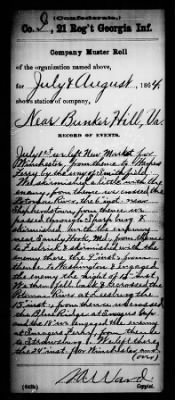 (Confederate.)
Co. I, 21 Reg't Georgia Inf.
Company Muster Roll
of the organization named above,
for July & August, 1864.
shows station of company,
Near Bunker Hill, Va.
RECORD OF EVENTS.
July 1st we left New Market for
Winchester, from thence to Harpers
Ferry by the way of Smithfield
We skirmished a little with the
enemy, from thence we crossed the
Potomac River, the 6 inst., near
Shepherdstown, from thence we
passed through Sharpsburg &
skirmished with the enemy
near Sandy Hook, Md., from thence
to Frederick & skirmished with the
enemy there the 9 inst., from
thence to Washington & engaged
the enemy the night of 12 inst.
We then fell back & crossed the
Potomac River at Leesburg the
15 inst., from thence we crossed
the Blue Ridge at Snickers Gap
and the 18" we engaged the enemy
at Snickers Ferry, from thence
to Strausburg &. We left there
the 24 inst. for Winchester and
(over)
M. Ward
Copyist.